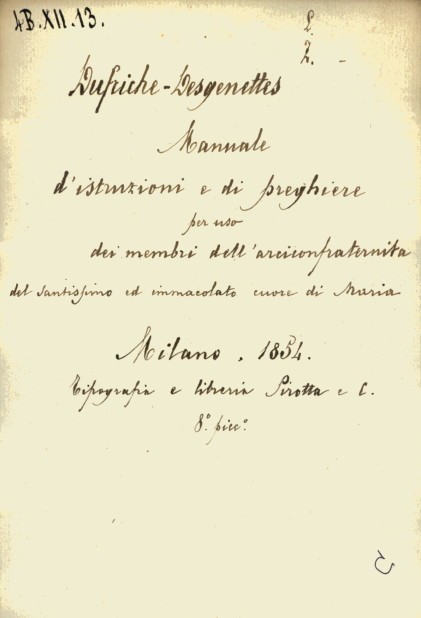 4B.XII.13.
L.
Z.
Dufriche-Desgenettes
Manuale
d'istruzioni e di preghiere
per uso
dei membri dell'arciconfraternita
del Santissimo ed immacolato cuore di Maria
Milano, 1854.
Tipografia e libreria Pirotta e C.
8º. picc.º